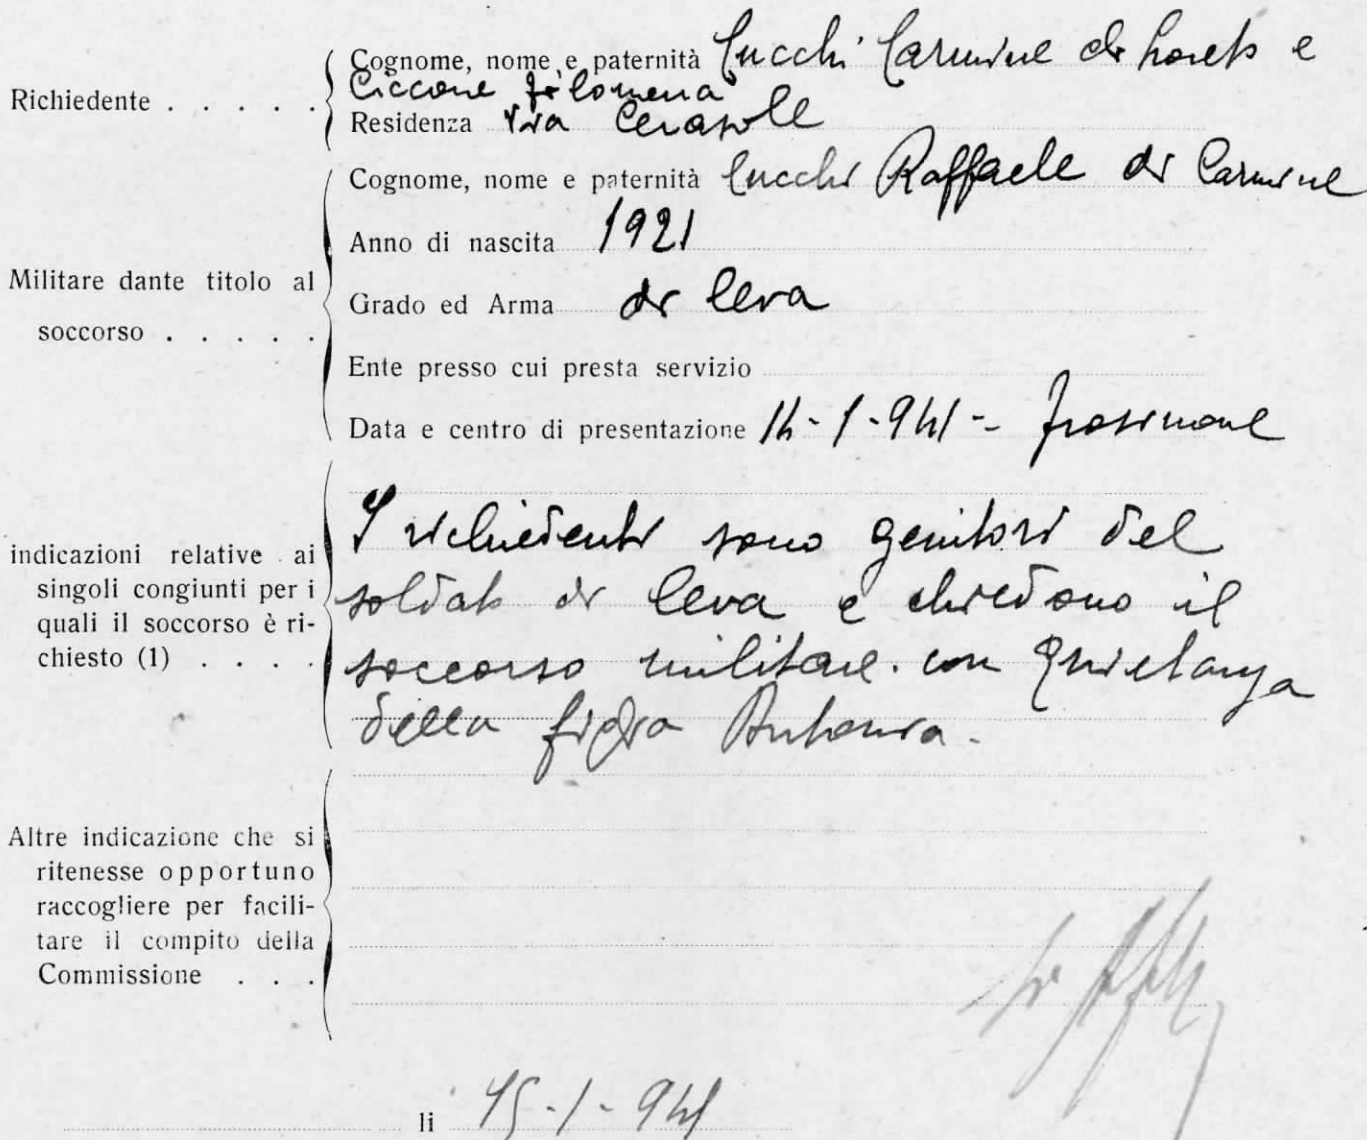 Richiedente . . . . .
Cognome, nome e paternità Cucchi Carmine di Loreto e
Ciccone Filomena
Residenza Via Cerasole
Militare dante titolo al
soccorso . . . . .
Cognome, nome e paternità Cucchi Raffaele di Carmine
Anno di nascita 1921
Grado ed Arma di leva
Ente presso cui presta servizio
Data e centro di presentazione 14-1-941 - Frosinone
indicazioni relative ai
singoli congiunti per i
quali il soccorso è ri-
chiesto (1) . . . .
I richiedenti sono genitori del
soldato di leva e chiedono il
soccorso militare. con quietanza
della figlia Antonia.
Altre indicazione che si
ritenesse opportuno
raccogliere per facili-
tare il compito della
Commissione . . .
li 15-1-941